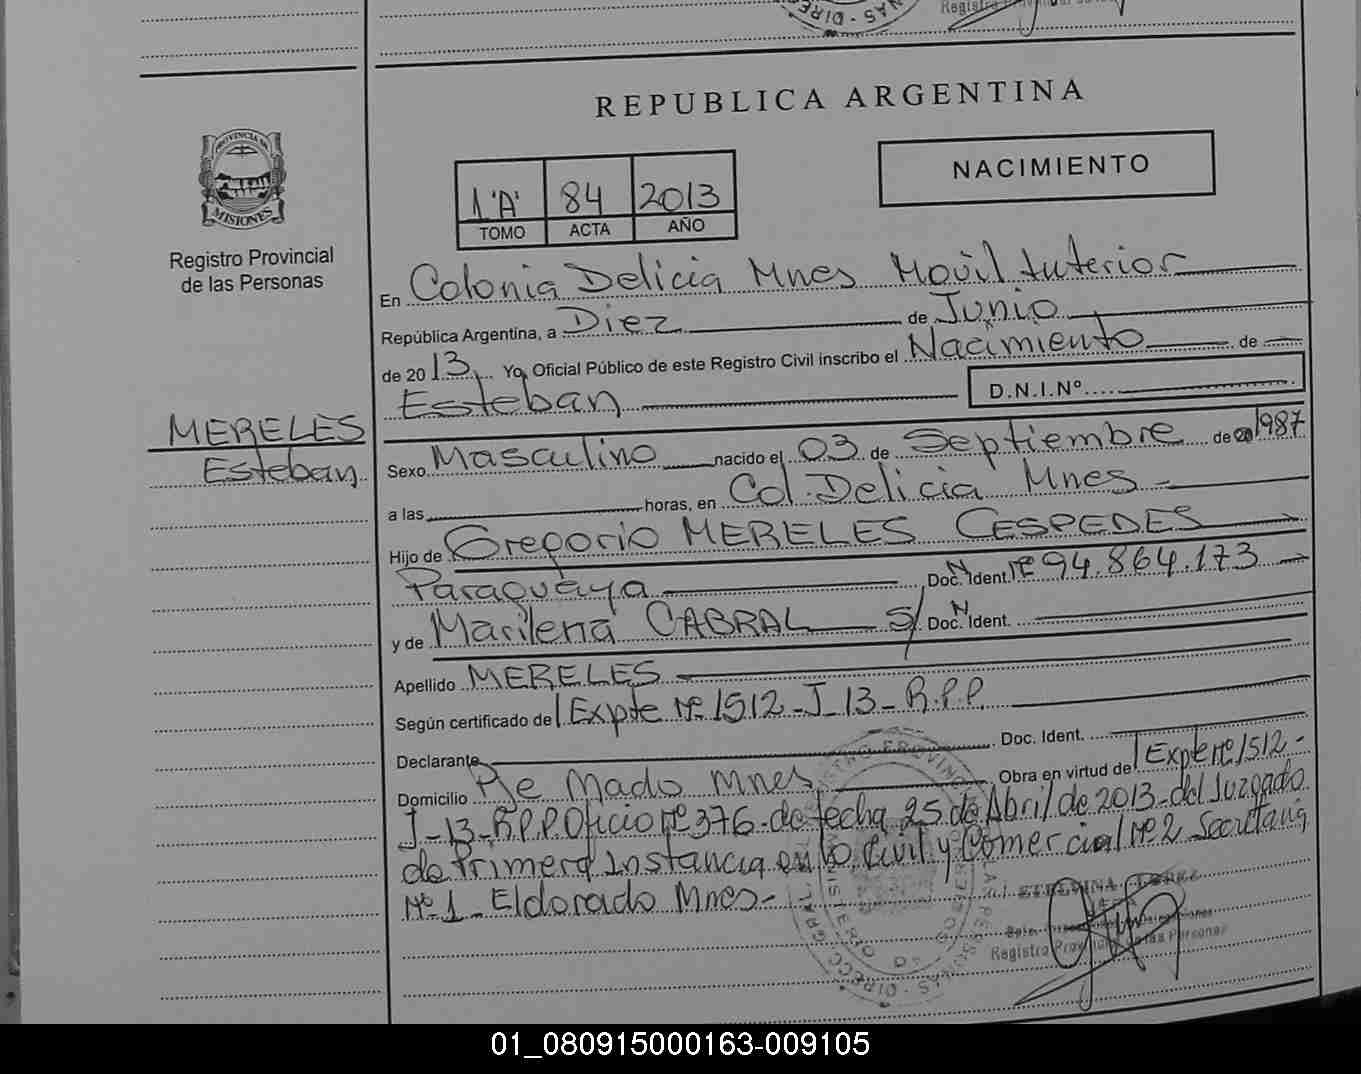 REPUBLICA ARGENTINA
NACIMIENTO
1 "A" 84 2013
TOMO ACTA AÑO
PROVINCIA DE
MISIONES
Registro Provincial
de las Personas
MERELES
Esteban
En Colonia Delicia Mnes Movil Interior
República Argentina, a Diez de Junio
de 2013. Yo, Oficial Público de este Registro Civil inscribo el Nacimiento de
Esteban D.N.I.Nº
Sexo Masculino nacido el 03 de Septiembre de 1987
a las horas, en Col. Delicia Mnes
Hijo de Gregorio MERELES CESPEDES
Paraguaya Doc. Ident. Nº 94.864.173
y de Marilena CABRAL S/ Doc. Ident.
Apellido MERELES
Según certificado de Expte Nº 1512-J-13-R.P.P.
Declarante Doc. Ident.
Domicilio Pje Mado Mnes Obra en virtud de Expte nº 1512-
J-13-R.P.P. Oficio nº 376-de fecha 25 de Abril de 2013-del Juzgado
de Primera Instancia en lo Civil y Comercial Nº 2 Secretaria
Nº 1 - Eldorado Mnes-
Registro Provincial de las Personas
01_080915000163-009105